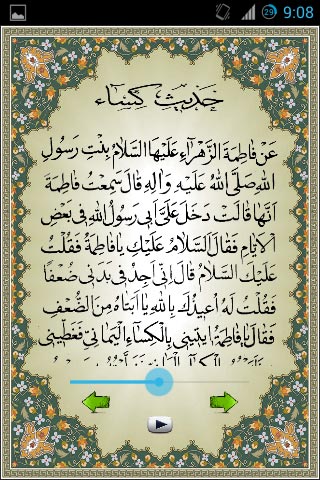 29 9:08
حديث كساء
عَنْ فَاطِمَةَ الزَّهْرَاءِ عَلَيْهَا السَّلَامُ بِنْتِ رَسُولِ
اللهِ صَلَّى اللهُ عَلَيْهِ وَآلِهِ قَالَ سَمِعْتُ فَاطِمَةَ
أَنَّهَا قَالَتْ دَخَلَ عَلَيَّ أَبِي رَسُولُ اللهِ فِي بَعْضِ
الْأَيَّامِ فَقَالَ السَّلَامُ عَلَيْكِ يَا فَاطِمَةُ فَقُلْتُ
عَلَيْكَ السَّلَامُ قَالَ إِنِّي أَجِدُ فِي بَدَنِي ضُعْفًا
فَقُلْتُ لَهُ أُعِيذُكَ بِاللهِ يَا أَبَتَاهُ مِنَ الضُّعْفِ
فَقَالَ يَا فَاطِمَةُ ايتِينِي بِالْكِسَاءِ الْيَمَانِي فَغَطِّينِي